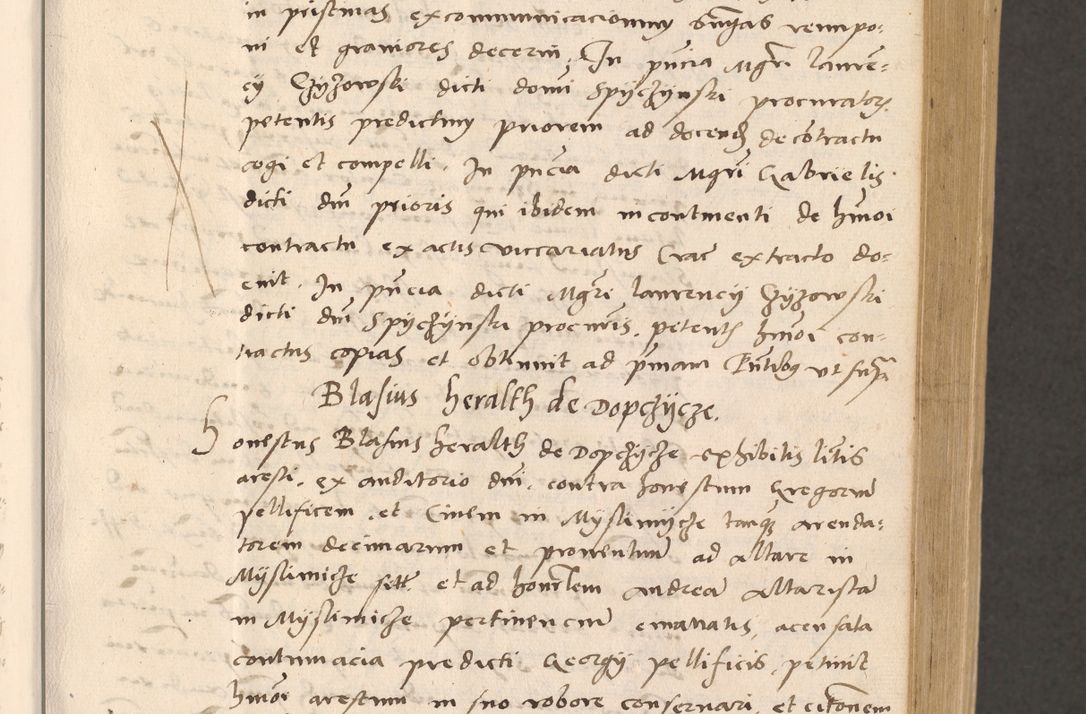 in pristinas excommunicacionum sn͞ias reimpo:
ni et graviores decerni. In pn͞cia Mgr͞i Lauren=
cy Czyżowski dicti domi͞ Spyczynski procurator͞
petentis predictum priorem ad docend͞ de co͞tractu
cogi et compelli. In pn͞cia dicti Mgr͞i Gabrielis
dicti dn͞i prioris qui ibidem incontinenti de hm͞oi
contractu ex actis viccariatus Crac͞ extracto do=
cuit. In pn͞cia dicti Mgr͞i Laurency Czyżowski
dicti dn͞i Spyczynski procur͞is petent͞ hm͞oi con=
tractus copias et obtinuit ad pm͞am Pn͞tibus ut sup͞
Blasius heralth de Dopczycze.
Honestus Blasius heralth de Dopczycze exhibitis lit͞is
aresti ex auditorio dn͞i contra honestum Gregoriu͞
pellificem et Civem in Myslimycze tanq͞ arenda=
torem decimarum et proventuu͞ ad altare in
Myslimicze sett͞ et ad hon͞lem Andrea͞ altarista͞
in Myslimicze pertinenciu͞ emanatis, acusata
contumacia predicti Georgy pellificis, petiuit
hm͞oi arestum in suo robore conservari, et cit͞onem